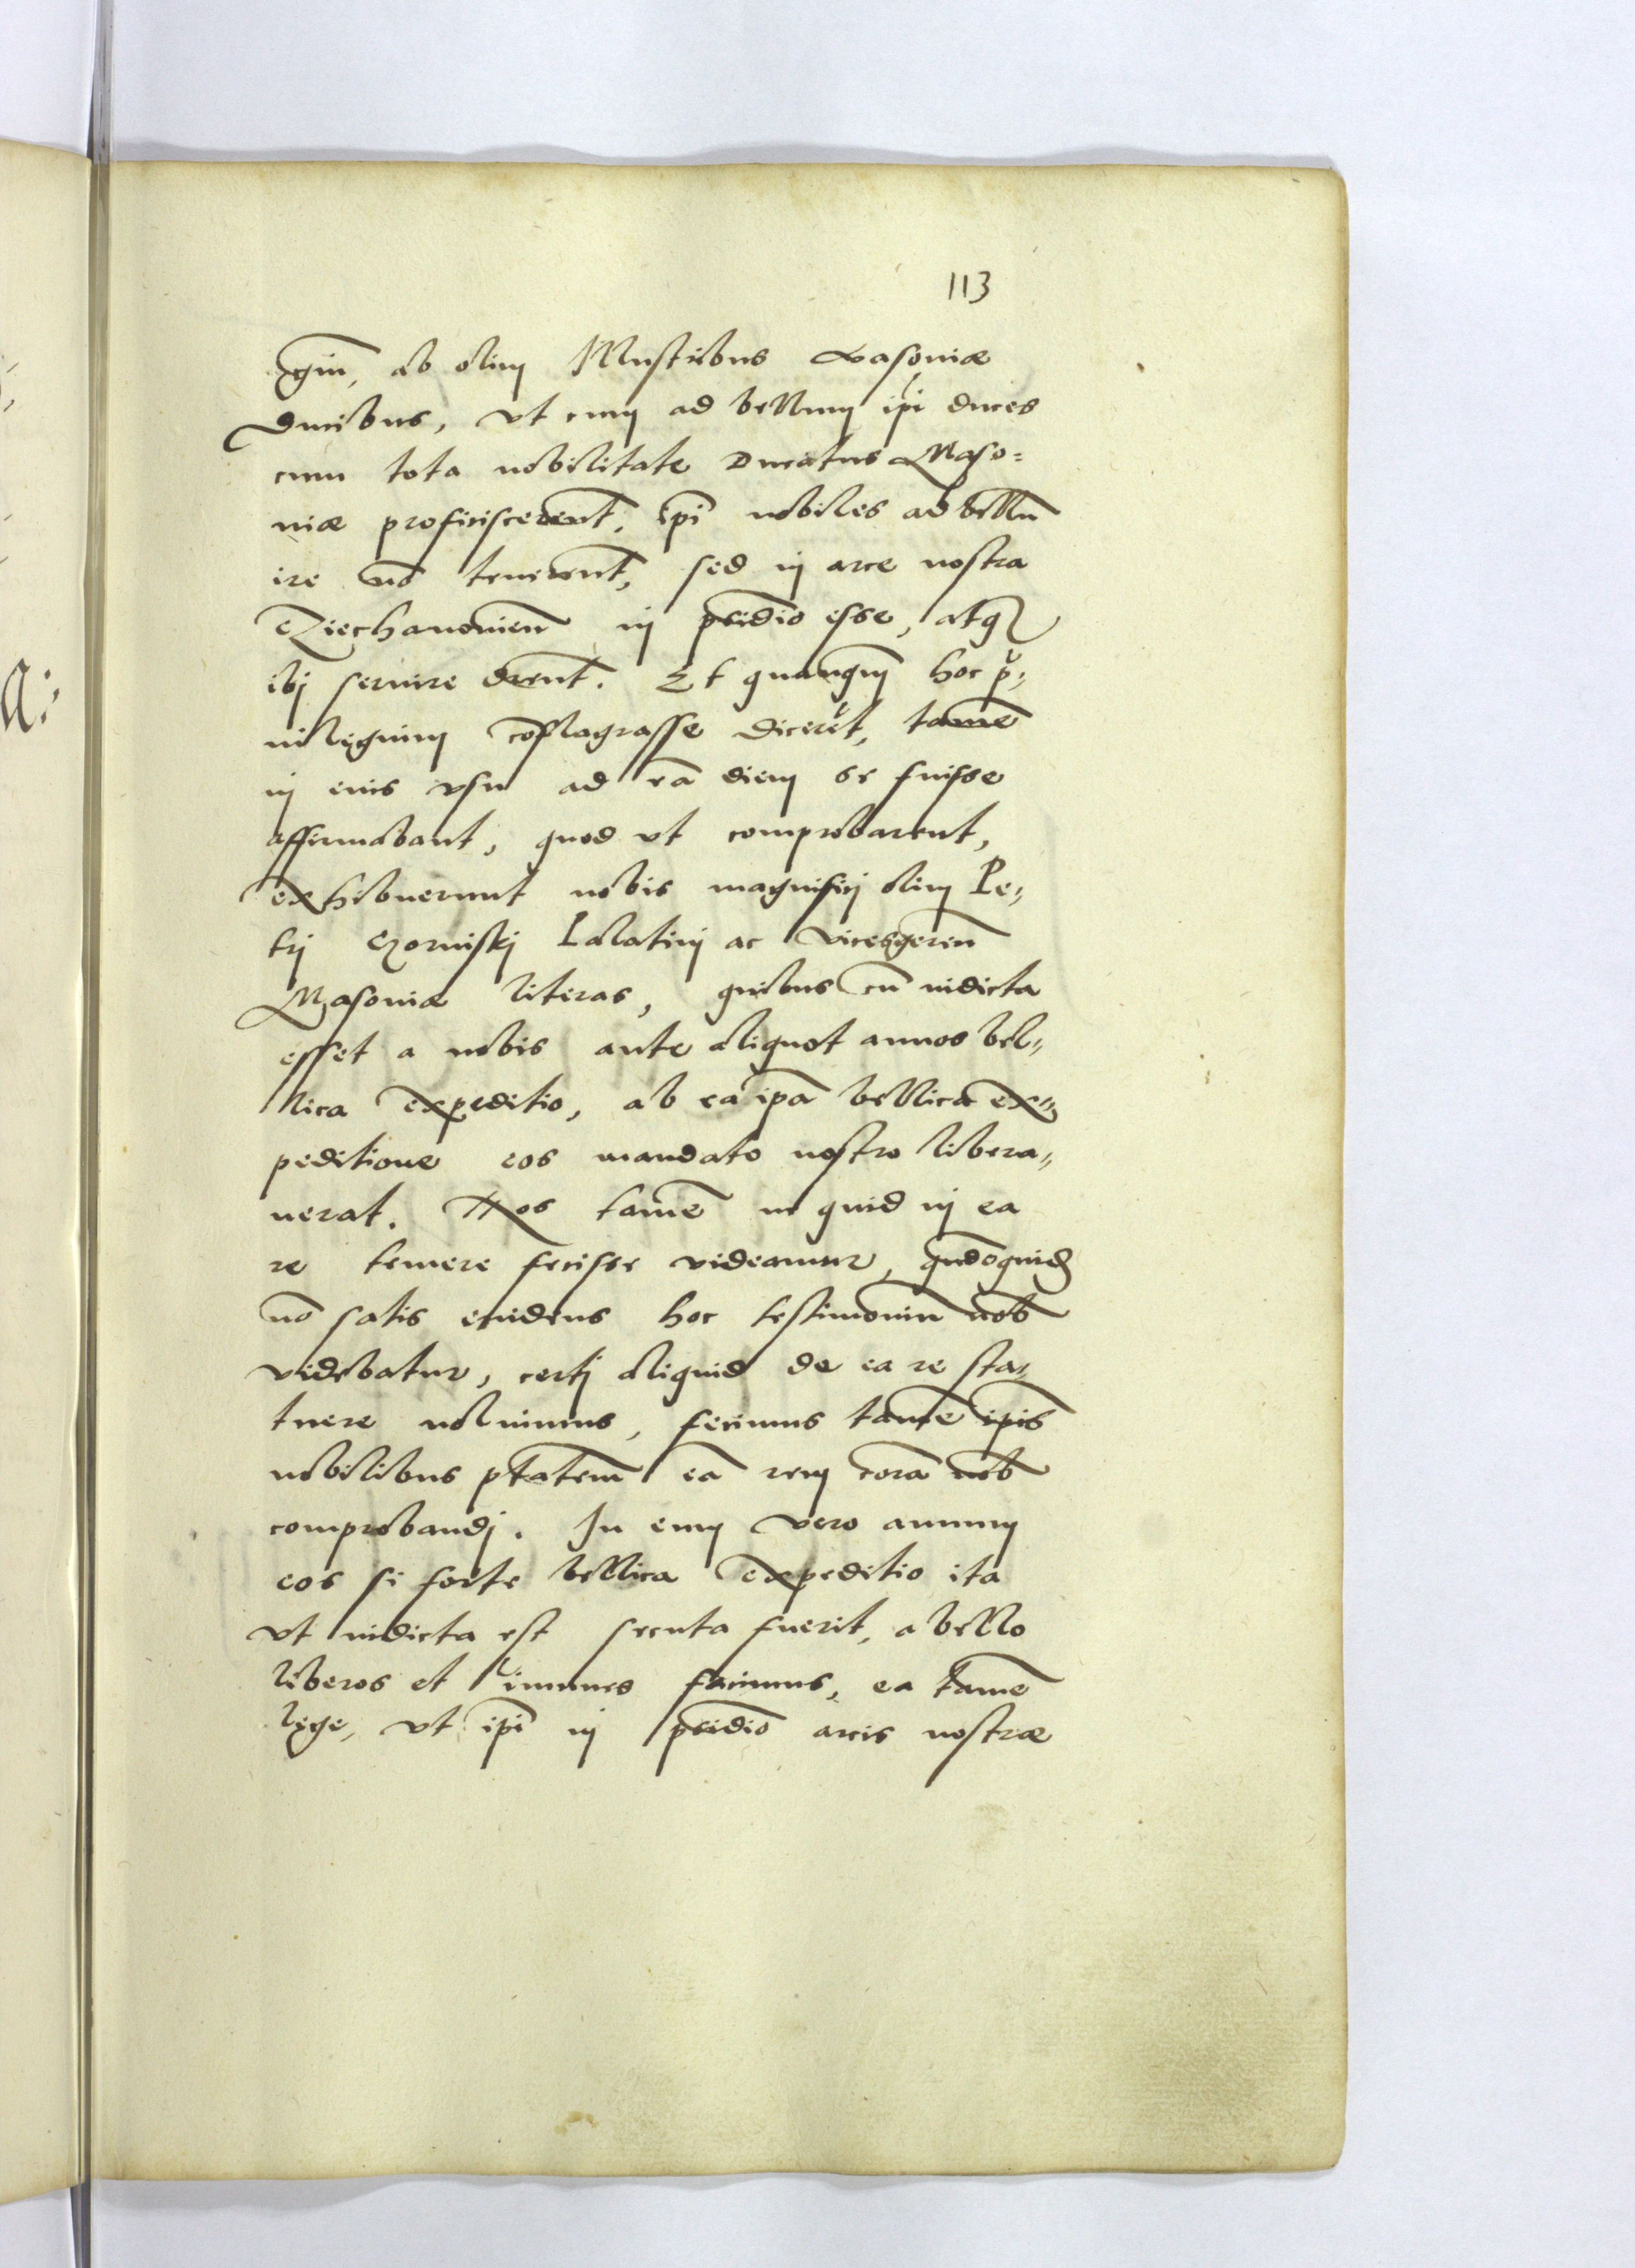 113
gm̄, ab olim Illustribus Masoviæ
Ducibus, vt cum ad bellum ip̄i duces
cum tota nobilitate Ducatus Maso=
uiæ proficiscerent̄, ip̄i nobiles ad bellū
ire nō tenerent̄, sed in arce nostra
Cziechanouien̄ in p̄sidio esse, atq3
ibj seruire d̄rent̄. Et quanq̄m hoc p̄i,
uilegium cōflagrasse diceret̄, tamē
in eius vsu ad eā diem se fuisse
affirmabant, quod vt comprobarent,
exhibuerunt nobis magnificj olim Pe,,
trj Gorinskj Palatinj ac vicesgeren̄
Masouiæ literas, quibus cū indicta
esset a nobis ante aliquot annos bel,,
lica expeditio, ab ea ip̄a bellica ex,,
peditione eos mandato nostro libera,,
uerat. Nos tamē ne quid in ea
re temere fecisse videamur, qn̄doquid̄
nō satis euidens hoc testimoniū nob̄
videbatur, certj aliquid de ea re sta,,
tuere noluimus, fecimus tamē ip̄is
nobilibus p̄tatem̄ eā rem corā nob̄
comprobandj. In eum vero annum
eos si forte bellica expeditio ita
vt indicta est secuta fuerit, a bello
liberos et im̄unes facimus, ea tamē
lege, vt ip̄i in p̄sidio arcis nostræ
a: